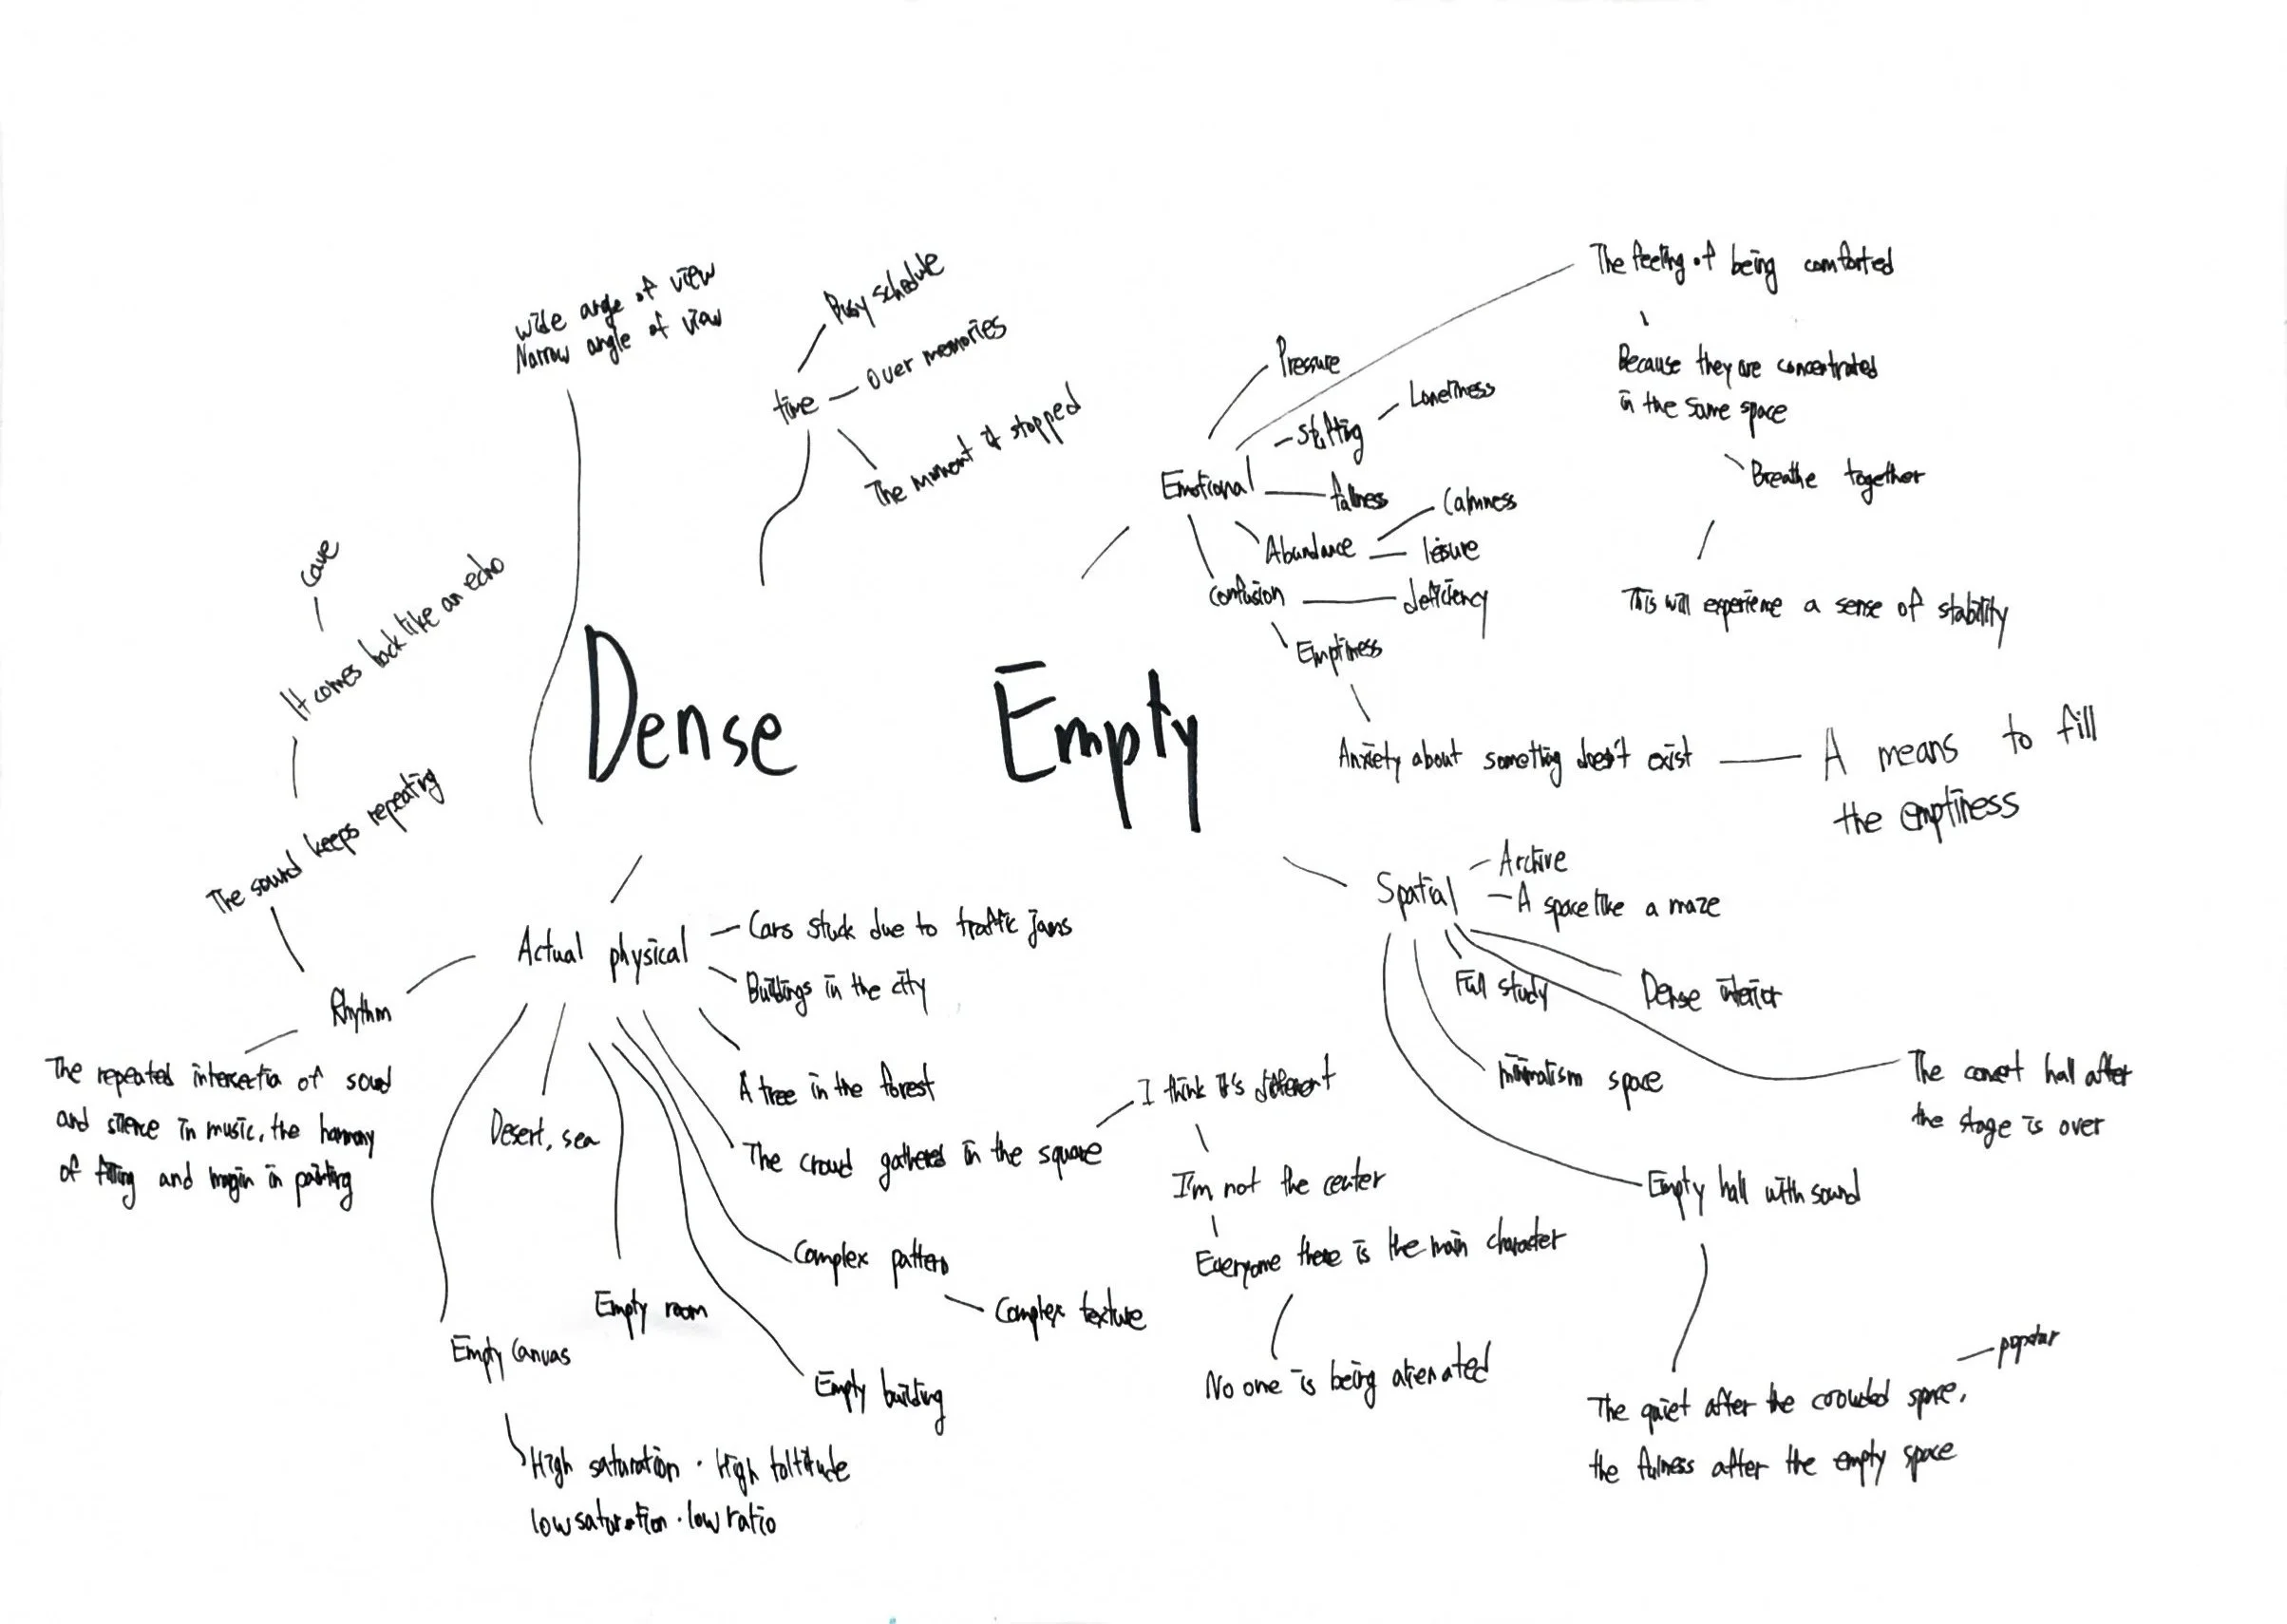 wide angle of view
Narrow angle of view
Busy schedule
time
Over memories
The moment it stopped
cave
It comes back like an echo
The sound keeps repeating
Rhythm
The repeated of sound
and silence in music, the harmony
of filling and margin in painting
Dense
Empty
Actual physical
Cars stuck due to traffic jams
Buildings in the city
A tree in the forest
The crowd gathered in the square
I think it's different
I'm not the center
Everyone there is the main character
No one is being alienated
Complex pattern
Complex texture
Desert, sea
Empty room
Empty building
Empty canvas
High saturation · High
low saturation · low ratio
Emotional
Pressure
Loneliness
fullness
Abundance
Calmness
leisure
confusion
deficiency
Emptiness
Anxiety about something doesn't exist
A means to fill
the emptiness
The feeling of being comforted
Because they are concentrated
in the same space
Breathe together
This will experience a sense of stability
Spatial
Archive
A space like a maze
Full study
Dense interior
minimalism space
The concert hall after
the stage is over
Empty hall with sound
The quiet after the crowded space,
the fulness after the empty space